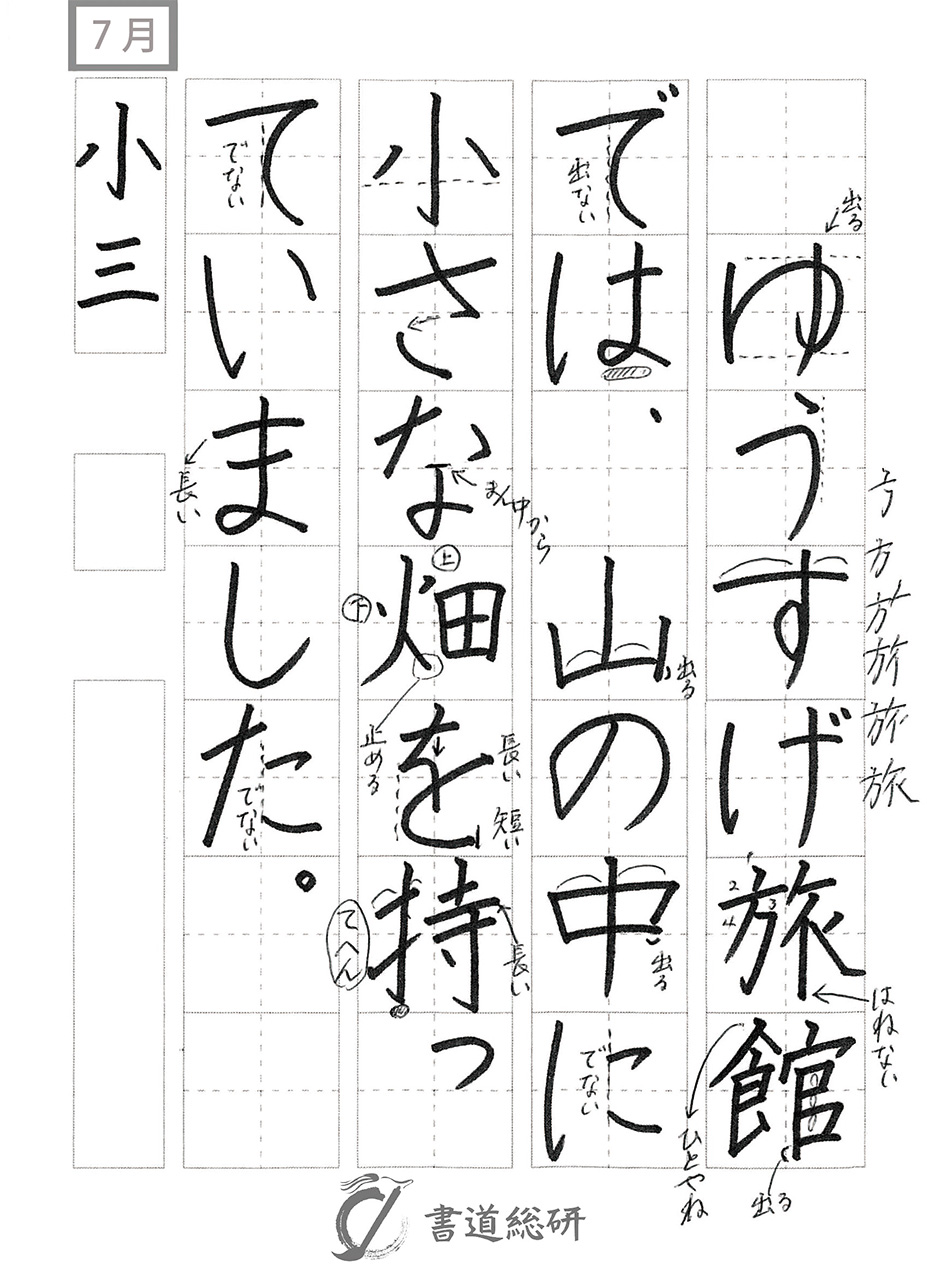 7月
ゆうすげ旅館
では、山の中に
小さな畑を持っ
ていました。
小三
出る
方
旅
はねない
ひとやね
出る
出ない
出る
出る
でない
まん中から
上
下
止める
長い
短い
てへん
長い
でない
長い
でない
書道総研